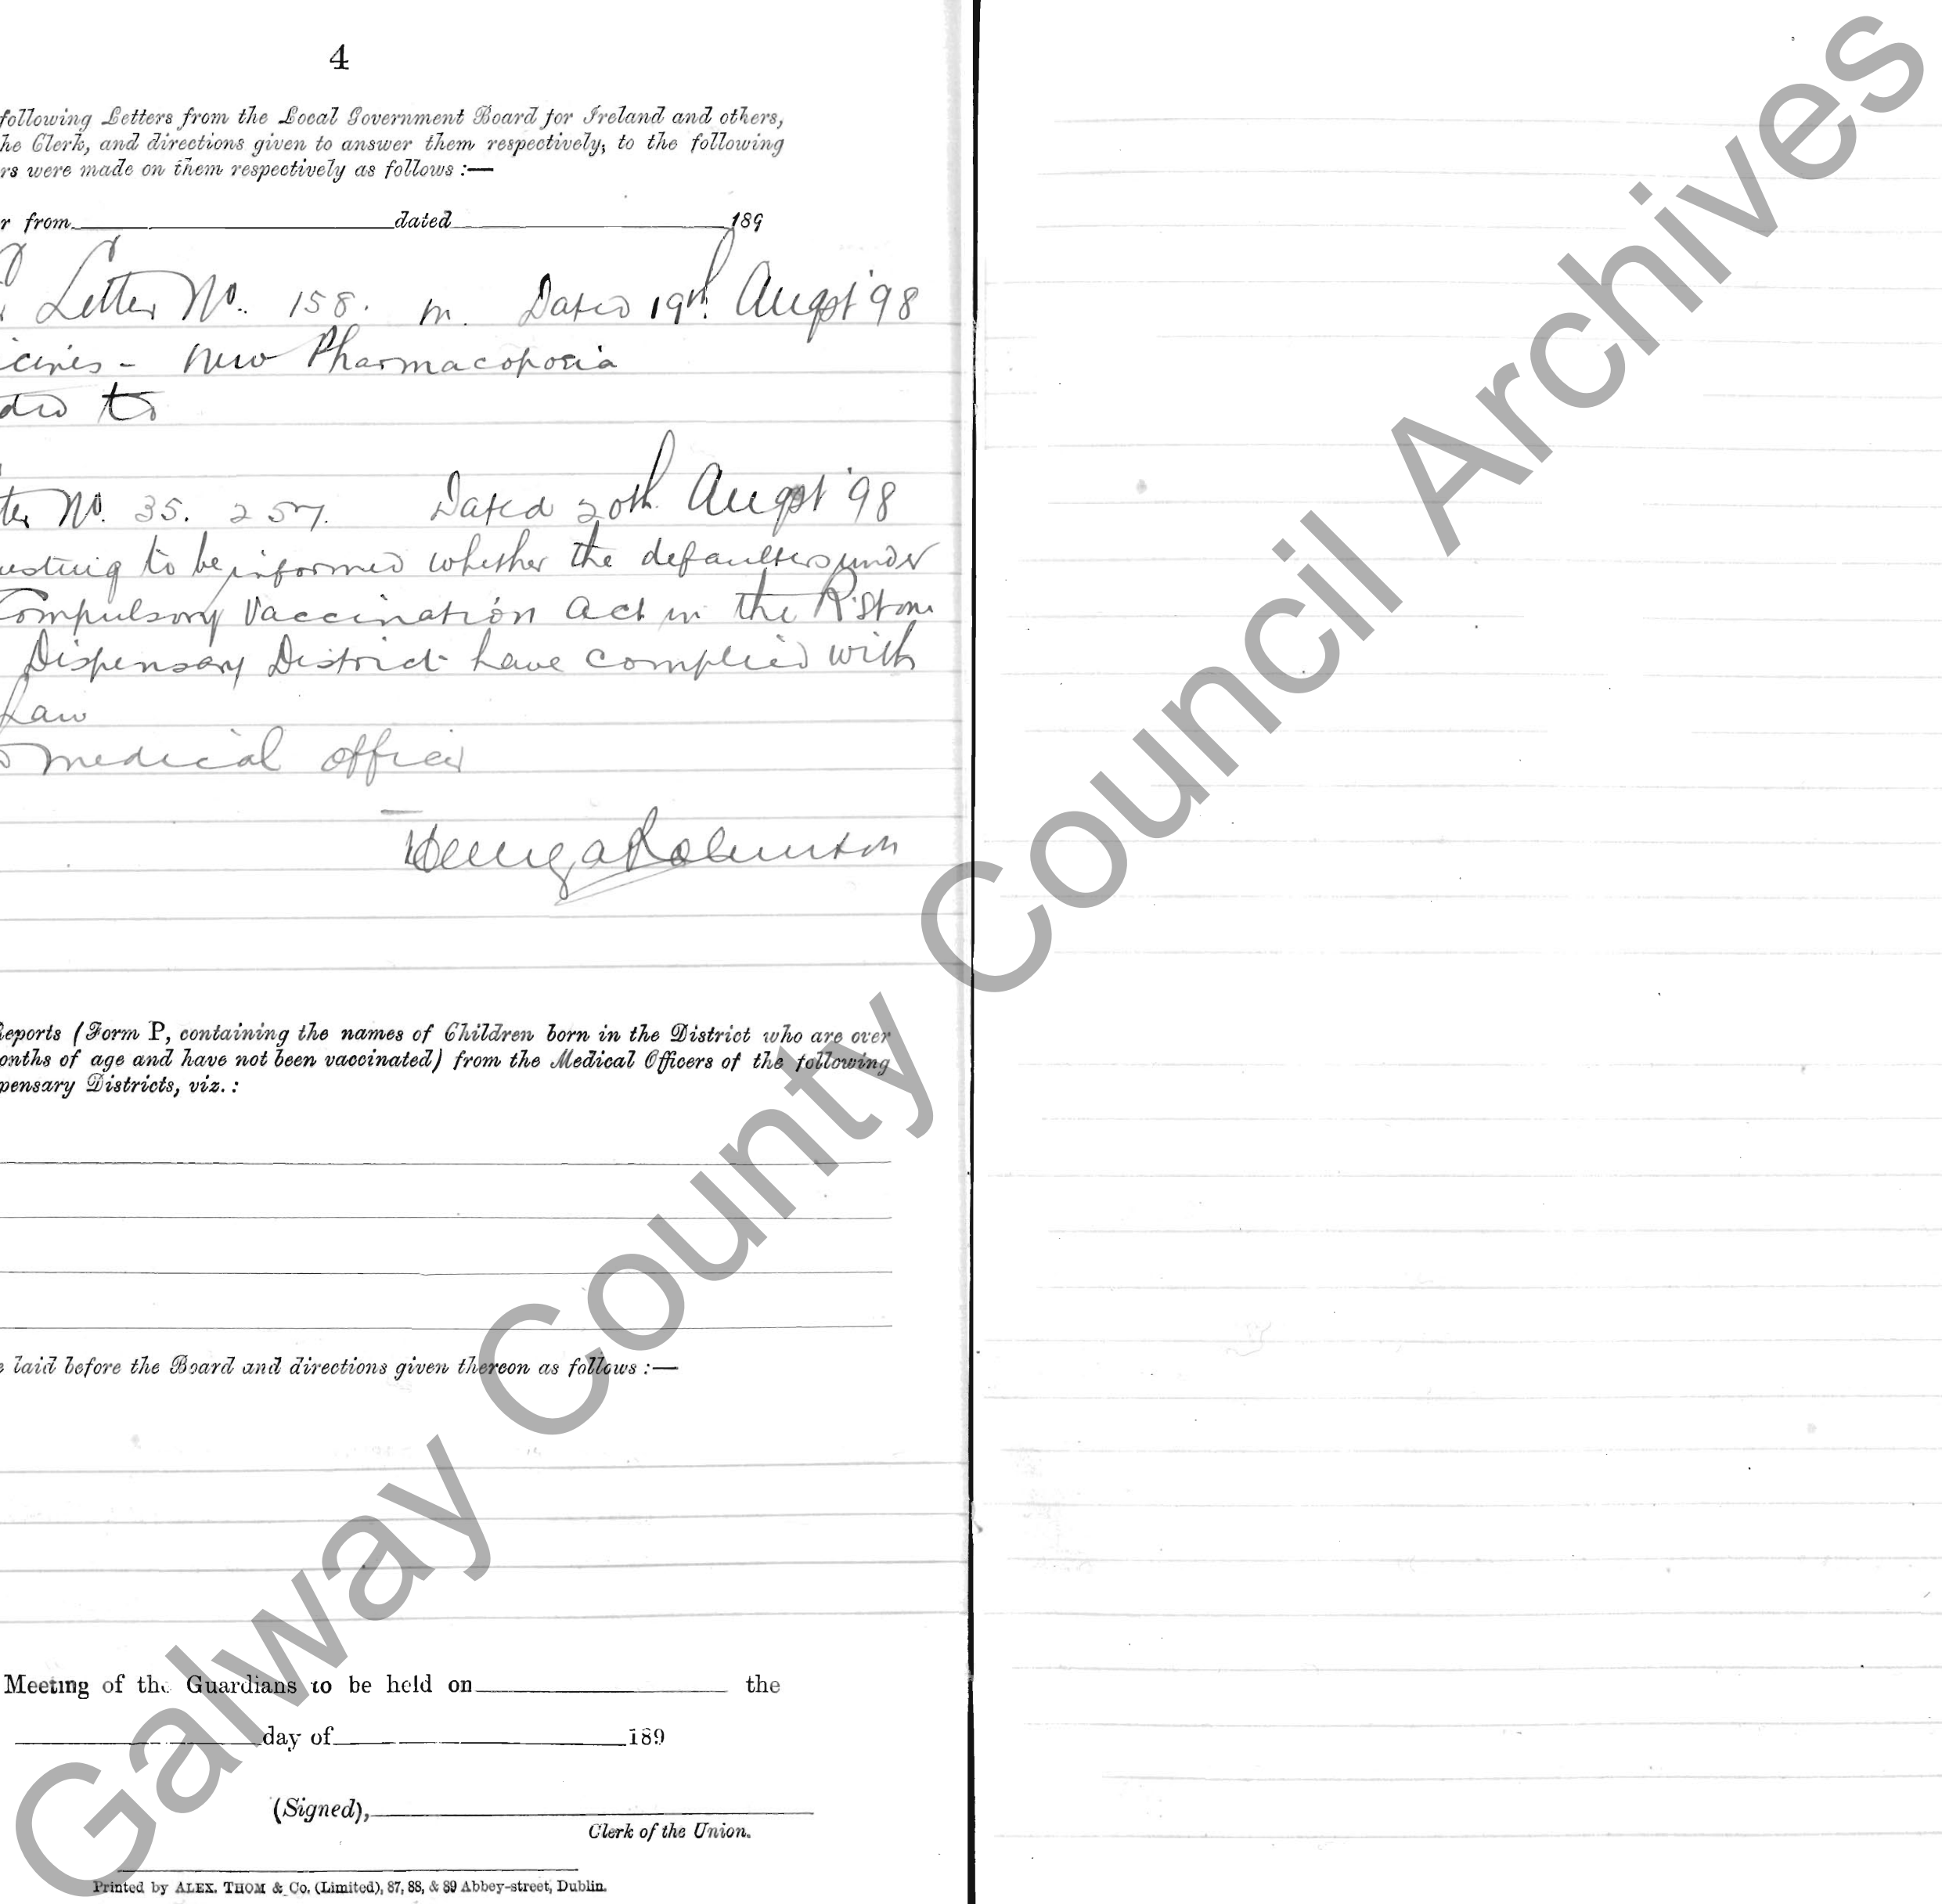 4
following Letters from the Local Government Board for Ireland and others,
he Clerk, and directions given to answer them respectively, to the following
rs were made on them respectively as follows :—
r from dated 189
Letter No. 158. M. Dated 19th. Augst '98
icines - New Pharmacopoeia
ded to
ter No. 35. 257. Dated 20th Augst '98
uesting to be informed whether the defaulters under
Compulsory Vaccination Act in the
Dispensary District have complied with
Law
Medical Officer
Robinson
Reports (Form P, containing the names of Children born in the District who are over
onths of age and have not been vaccinated) from the Medical Officers of the following
pensary Districts, viz. :
e laid before the Board and directions given thereon as follows :—
Meeting of the Guardians to be held on the
day of 189
(Signed),
Clerk of the Union.
Printed by ALEX. THOM & Co. (Limited), 87, 88, & 89 Abbey-street, Dublin.
Galway County Council Archives